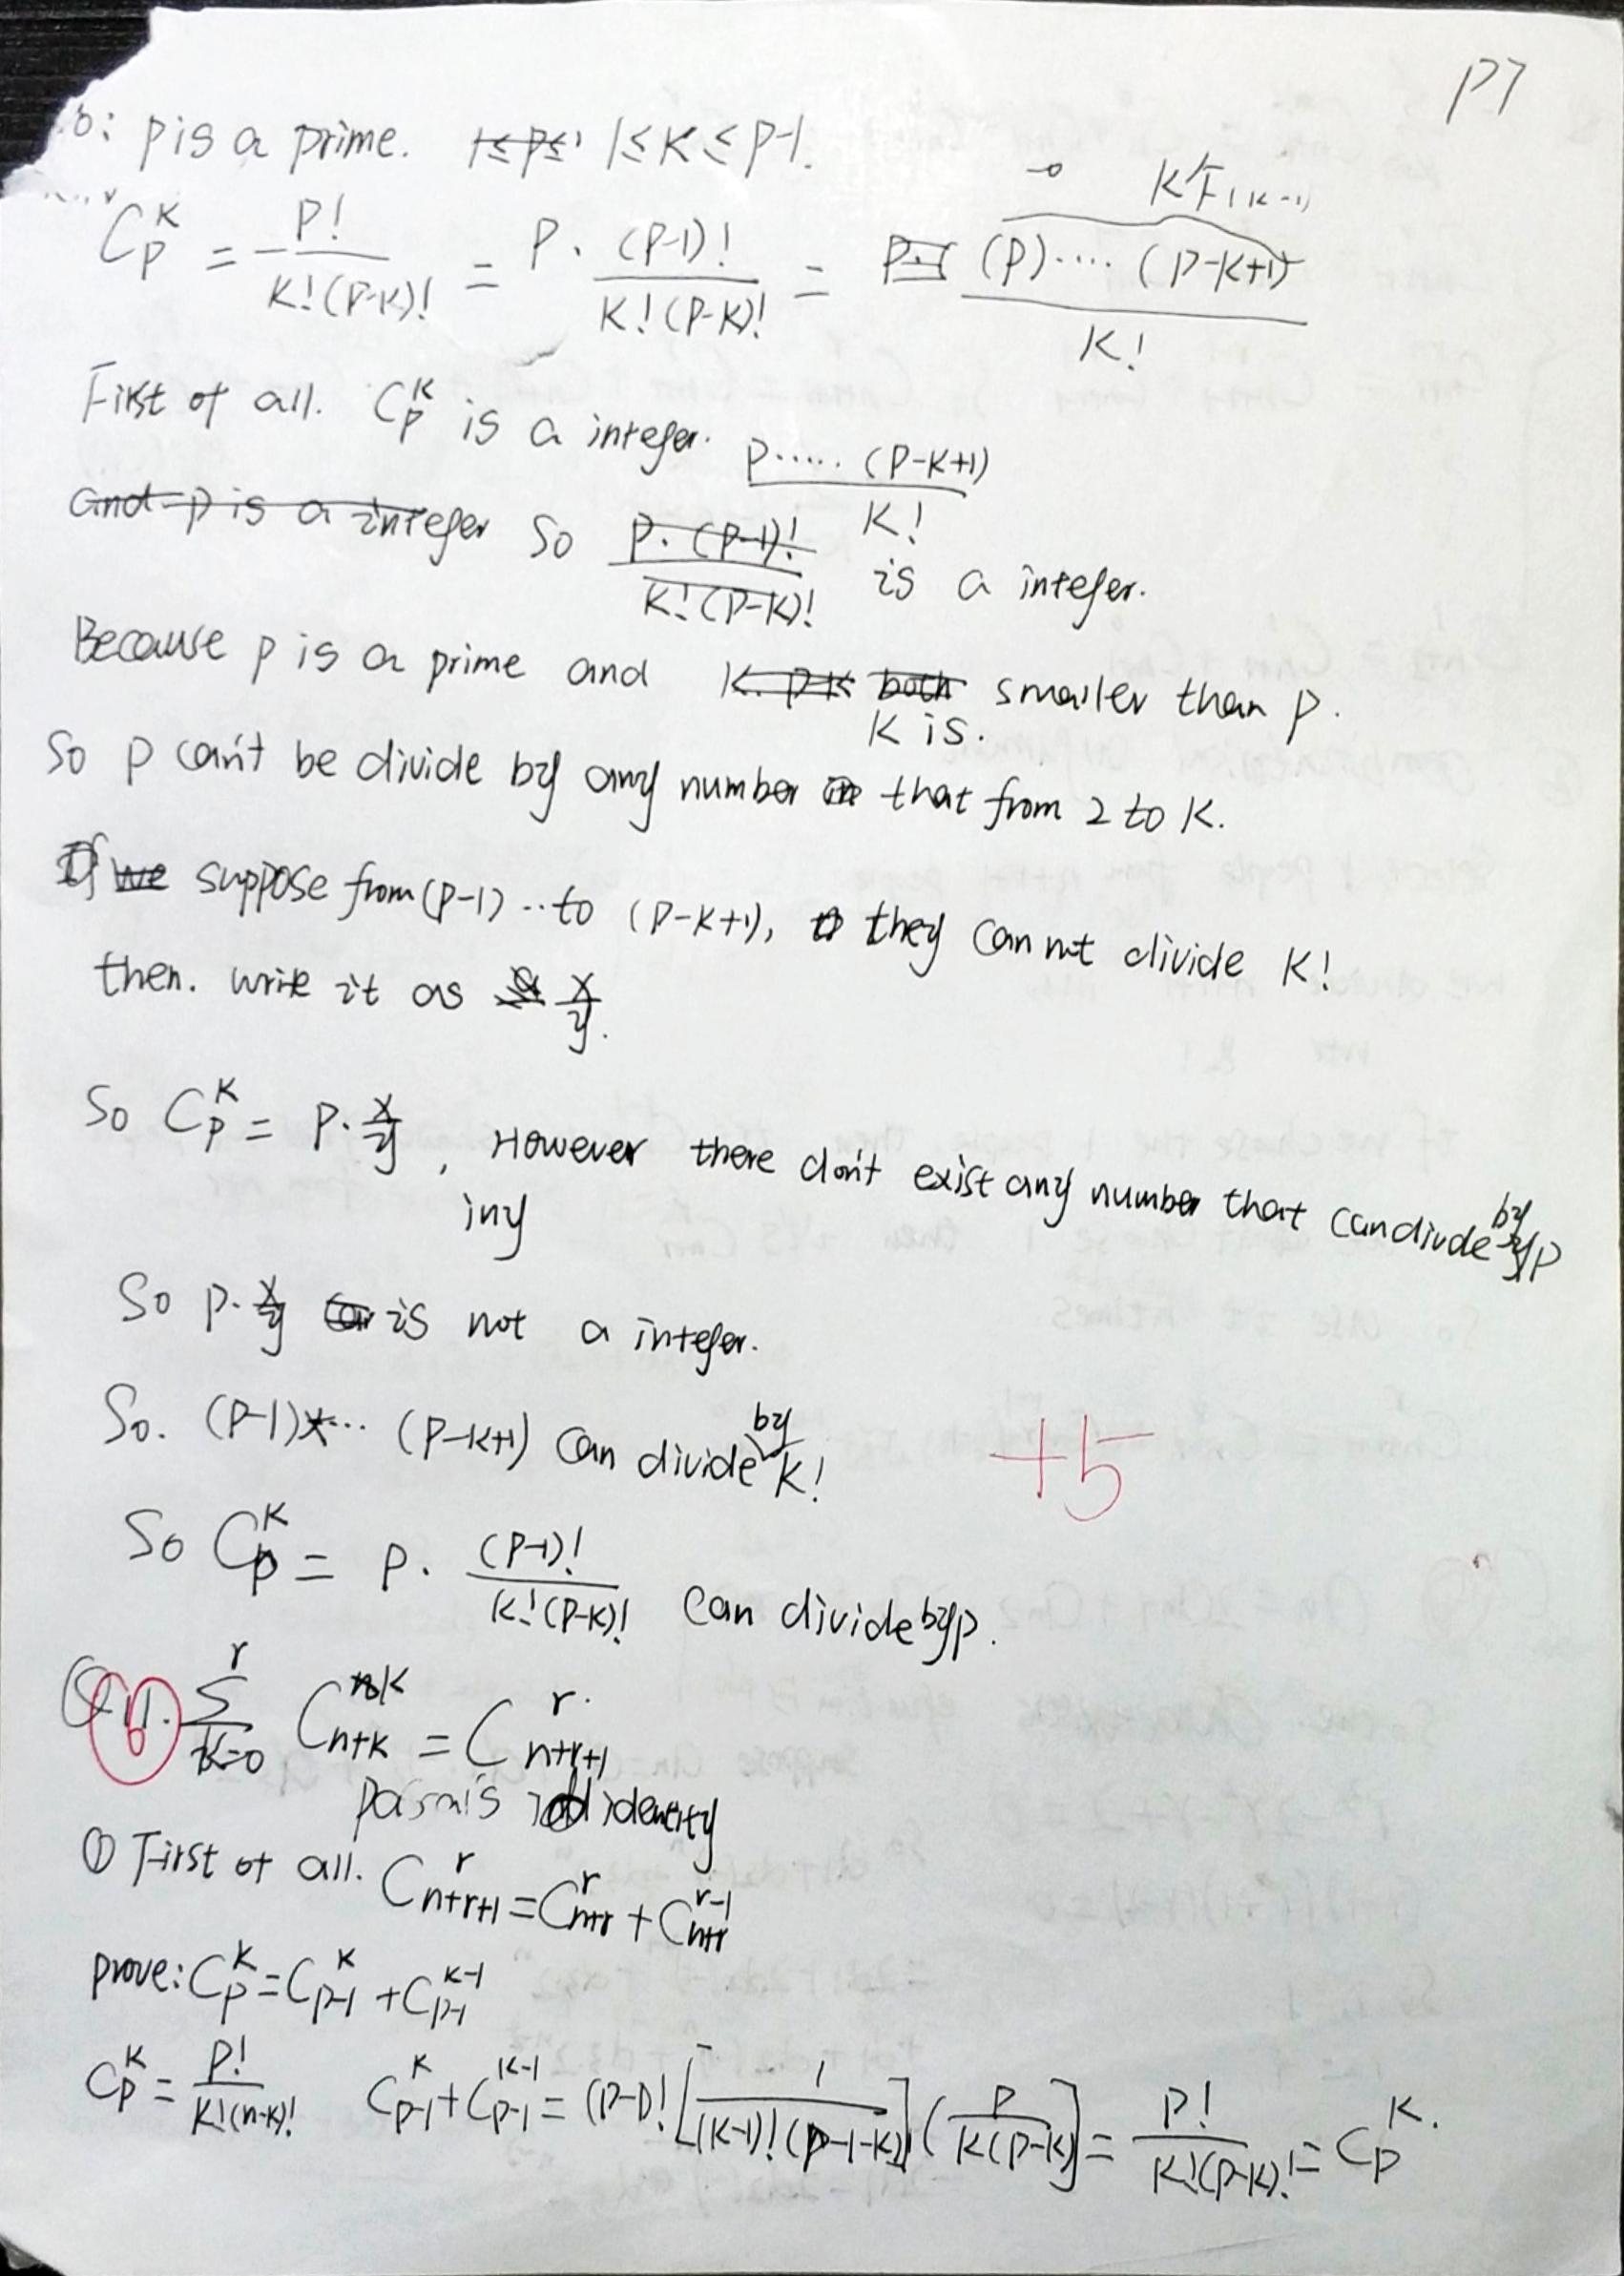 P7
6: p is a prime. 1≤p≤ 1≤K≤P-1.
K个 (K-1)
C_P^K = P!/K!(P-K)! = P·(P-1)!/K!(P-K)! = (P)····(P-K+1)/K!
First of all. C_P^K is a integer.
and p is a integer So P·(P-1)!/K!(P-K)! P·····(P-K+1)/K! is a integer.
Because p is a prime and K. P-K both K is. smaller than p.
So p can't be divide by any number that from 2 to K.
If we suppose from (P-1)··to (P-K+1), they can not divide K!
then. write it as x/y.
So C_P^K = P·x/y, However there don't exist any number that can divde by p
in y
So p·x/y is not a integer.
So. (P-1)×··· (P-K+1) can divide by K!
+5
So C_P^K = P·(P-1)!/K!(P-K)! can divide by p.
6 Σ_{K=0}^r C_{n+K}^K = C_{n+r+1}^r.
identity
① First of all. C_{n+r+1}^r = C_{n+r}^r + C_{n+r}^{r-1}
prove: C_P^K = C_{P-1}^K + C_{P-1}^{K-1}
C_P^K = P!/K!(n-K)! C_{P-1}^K + C_{P-1}^{K-1} = (P-1)! [1/(K-1)!(P-1-K)!] (P/K(P-K)] = P!/K!(P-K)! = C_P^K.